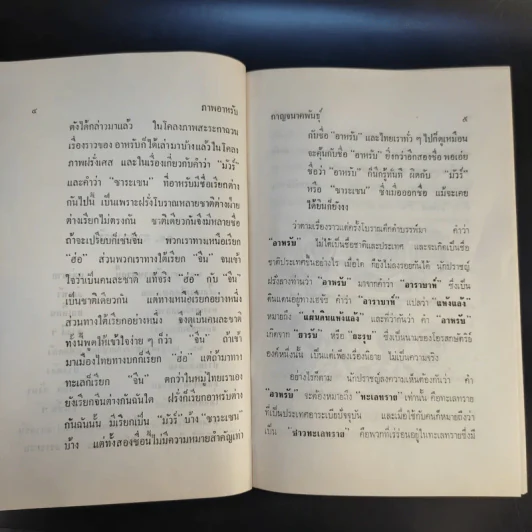 ๔
ภาพอาหรับ
ดังได้กล่าวมาแล้ว ในโคลงภาพเสะระกาฉวน
เรื่องราวของ อาหรับก็ได้เล่ามาบ้างแล้วในโคลง
ภาพฝรั่งเศส และในเรื่องเกี่ยวกับคำว่า "มัวร์"
และคำว่า "ซาระเซน" ที่อาหรับมีชื่อเรียกต่าง
กันไปนี้ เป็นเพราะฝรั่งโบราณหลายชาติต่างฝ่าย
ต่างเรียกไม่ตรงกัน ชาติเดียวกันจึงมีหลายชื่อ
ถ้าจะเปรียบก็เช่นจีน พวกเราทางเหนือเรียก
"ฮ่อ" ส่วนพวกเราทางใต้เรียก "จีน" จนเข้า
ใจว่าเป็นคนละชาติ แท้จริง "ฮ่อ" กับ "จีน"
เป็นชาติเดียวกัน แต่ทางเหนือเรียกอย่างหนึ่ง
ส่วนทางใต้เรียกอย่างหนึ่ง จึงดูเป็นคนละชาติ
ทั้งนี้พูดให้เข้าใจง่าย ๆ ก็ว่า "จีน" ถ้าเข้า
มาเมืองไทยทางบกก็เรียก "ฮ่อ" แต่ถ้ามาทาง
ทะเลก็เรียก "จีน" ตกว่าในหมู่ไทยเราเอง
ยังเรียกจีนต่างกันนัดใด ฝรั่งก็เรียกอาหรับต่าง
กันฉันนั้น มีเรียกเป็น "มัวร์" บ้าง "ซาระเซน"
บ้าง แต่ทั้งสองชื่อนี้ไม่มีความหมายสำคัญเท่า
กาญจนาคพันธุ์
๕
กับชื่อ "อาหรับ" และไทยเราทั่ว ๆ ไปก็ดูเหมือน
จะคุ้นกับชื่อ "อาหรับ" ยิ่งกว่าอีกสองชื่อ พอเอ่ย
ชื่อว่า "อาหรับ" ก็นึกรู้ทันที ผิดกับ "มัวร์"
หรือ "ซาระเซน" ซึ่งเบื่อออกจะ แม้จะเคย
ได้ยินก็ยังงง
ว่าตามเรื่องราวแต่ครั้งโบราณดึกดำบรรพ์มา คำว่า
"อาหรับ" ไม่ได้เป็นชื่อชาติและประเทศ และจะเกิดเป็นชื่อ
ชาติประเทศขึ้นอย่างไร เมื่อใด ก็ยังไม่ลงรอยกันได้ นักปราชญ์
ฝรั่งบางท่านว่า "อาหรับ" มาจากคำว่า "อาราบาห์" ซึ่งเป็น
ดินแดนอยู่ทางเฮรัช คำว่า "อาราบาห์" แปลว่า "แห้งแล้ง"
หมายถึง "แผ่นดินแห้งแล้ง" และที่ว่ากันว่า คำ "อาหรับ"
เกิดจาก "ยารับ" หรือ "ยะรบ" ซึ่งเป็นนามของโอรสกษัตริย์
องค์หนึ่งนั้น เป็นแต่เพียงเรื่องนิยาย ไม่เป็นความจริง
อย่างไรก็ตาม นักปราชญ์ลงความเห็นต้องกันว่า คำ
"อาหรับ" จะต้องหมายถึง "ทะเลทราย" เท่านั้น คือทะเลทราย
ที่เป็นประเทศอาระเบียปัจจุบัน และเมื่อใช้กับคนก็หมายถึงว่า
เป็น "ชาวทะเลทราย" คือพวกที่เร่ร่อนอยู่ในทะเลทรายซึ่งมี